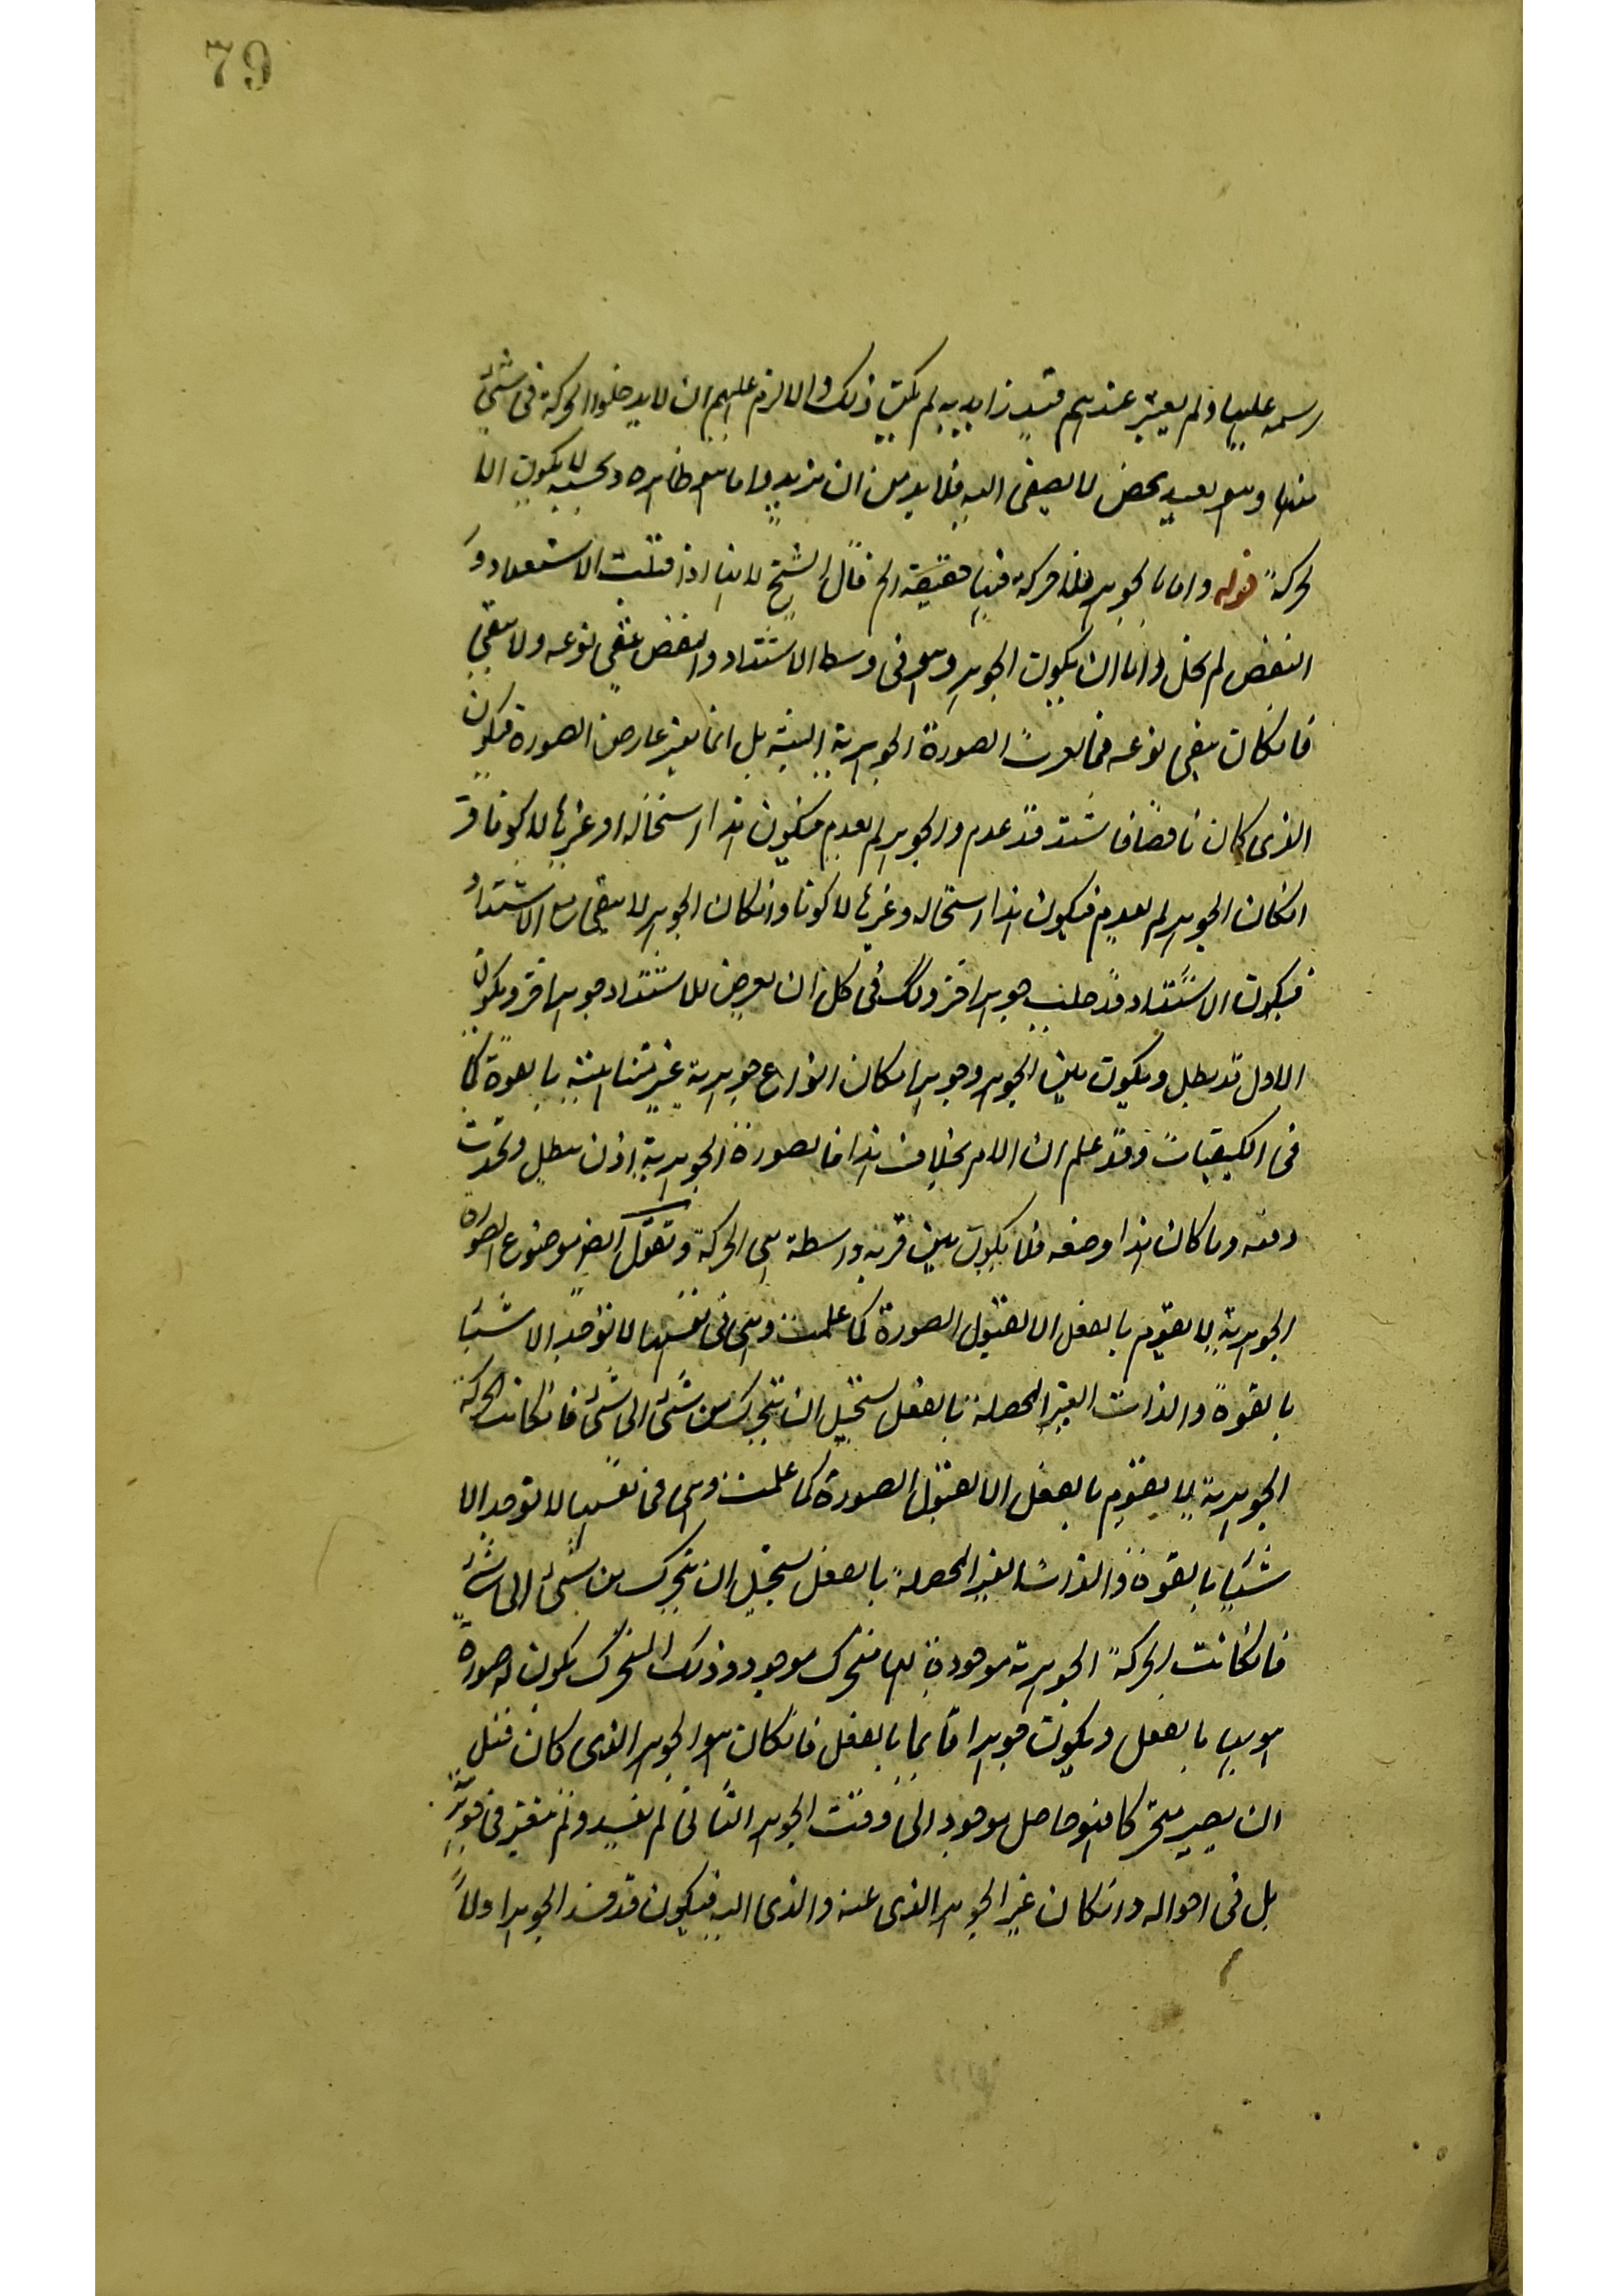 79
رسمه عليها ولم يعتبر عندهم قيد زايد به لم يكن ذلك والا لزم عليهم ان لا يدخلوا الحركة فى شئ
منها وهو بعيد محض لا يصغى اليه فلا بد من ان يزيد واما هو ظاهره وبحسبه لا يكون الا
لحركة قوله واما الجوهر فلا حركة فيها حقيقة الخ قال الشيخ لانها اذا قبلت الاشتداد و
التنقص لم يخل اما ان يكون الجوهر وهو فى وسط الاشتداد والتنقص يبقى نوعه ولا يبقى
فانكان يبقى نوعه فما تغيرت الصورة الجوهرية البتة بل انما تغير عارض الصورة فيكون
الذى كان ناقصا فاشتد قد عدم والجوهر لم يعدم فيكون هذا استحالة او غيرها لا كونا و
انكان الجوهر لم يعدم فيكون هذا استحالة وغيرها لا كونا وانكان الجوهر لا يبقى مع الاشتداد
فيكون الاشتداد قد جلب جوهرا اخر وكك فى كل ان يعرض للاشتداد جوهرا اخر ويكون
الاول قد بطل ويكون بين الجوهر وجوهر امكان انواع جوهرية غير متناهية بالقوة كما
فى الكيفيات وقد علم ان الامر بخلاف هذا فالصورة الجوهرية اذن تبطل وتحدث
دفعه وما كان هذا وصفه فلا يكون بين قوته واسطة هى الحركة ونقول ايضا موضوع الصورة
الجوهرية لا يقوم بالفعل الا بقبول الصورة كما علمت وهى فى نفسها لا توجد الا شيئا
بالقوة والذات الغير المحصلة بالفعل يستحيل ان يتحرك من شئ الى شئ فانكانت الحركة
الجوهرية لا يقوم بالفعل الا بقبول الصورة كما علمت وهى فى نفسها لا توجد الا
شيئا بالقوة والذات الغير المحصلة بالفعل يستحيل ان يتحرك من شئ الى شئ
فانكانت الحركة الجوهرية موجودة فلها متحرك موجود وذلك المتحرك يكون له صورة
هو بها بالفعل ويكون جوهرا قايما بالفعل فانكان هو الجوهر الذى كان قبل
ان يصير متحركا فهو حاصل موجود الى وقت الجوهر الثانى لم يفسد ولم يتغير فى جوهريته
بل فى احواله وانكان غير الجوهر الذى عنه والذى اليه فيكون قد فسد الجوهر اولا